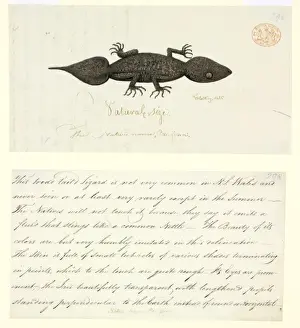 Natural size.
This broad tail'd Lizard is not very common in N. S. Wales and
never seen or at least very rarely except in the Summer —
The Natives will not touch it, because they say it emits a
fluid that stings like a common Nettle — The Beauty of its
colors are but very humbly imitated in this delineation
The Skin is full of small tubercles of various shapes terminating
in points, which to the touch are quite rough. Its Eyes are promi-
nent — the Iris beautifully transparent, with lengthen'd pupils
standing perpendicular to the Earth instead of round or horizontal